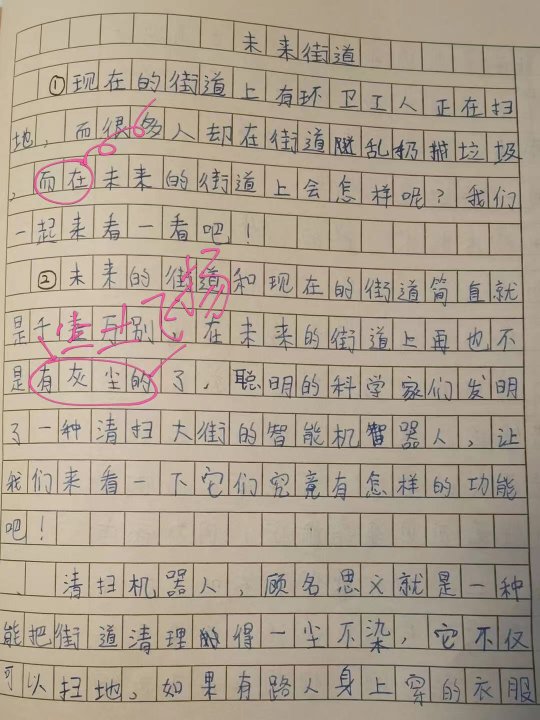 未来街道
①现在的街道上有环卫工人正在扫
地，而很多人却在街道随乱扔垃圾
，而在未来的街道上会怎样呢？我们
一起来看一看吧！
②未来的街道和现在的街道简直就
尘土飞扬
是千差万别，在未来的街道上再也不
是有灰尘的了，聪明的科学家们发明
了一种清扫大街的智能机器人，让
我们来看一下它们究竟有怎样的功能
吧！
、清扫机器人，顾名思义就是一种
能把街道清理的得一尘不染，它不仅
可以扫地，如果有路人身上穿的衣服